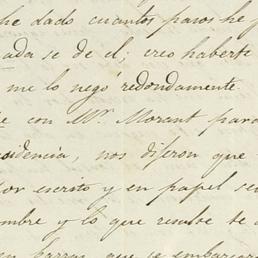 he dado cuantos pasos he
ada se de el; creo haberte
me lo negó redondamente.
con Mr. Morent para
sidencia, nos dijeron que
or escrito y en papel se
mbre y lo que resulte te
en barras, que se embarcar